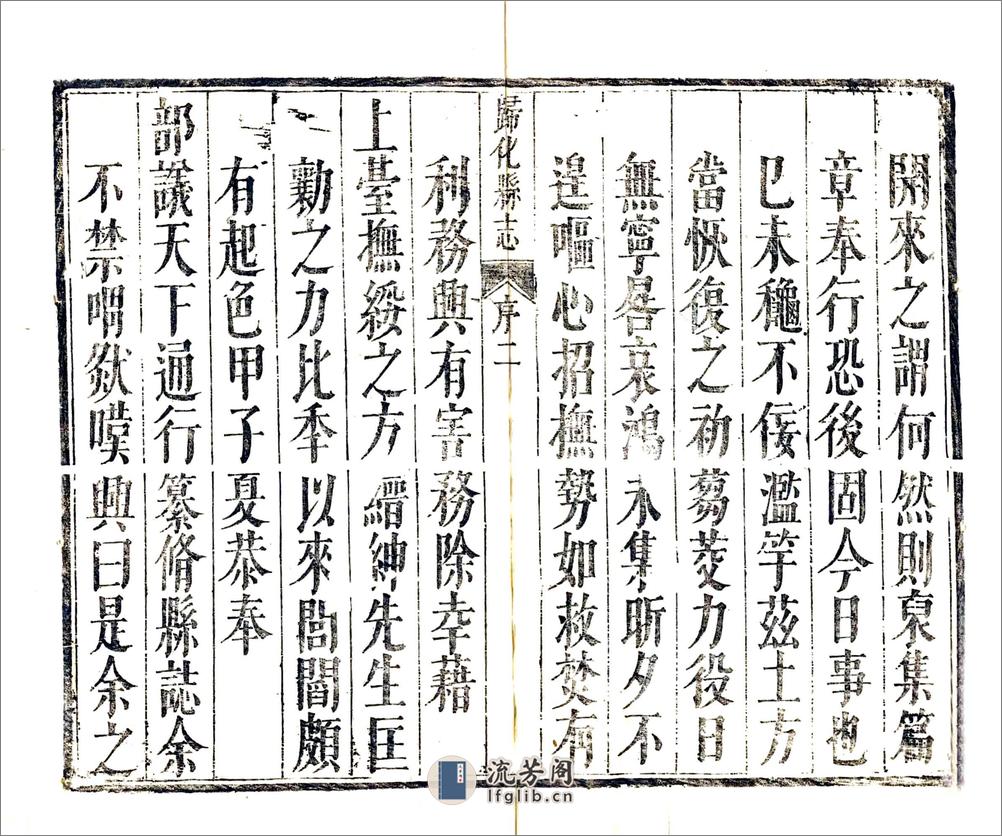 開來之謂何然則裒集篇
章奉行恐後固今日事也
已未穐不佞濫竽茲土方
當恢復之初蒭茭力役日
無寧晷哀鴻未集昕夕不
遑嘔心招撫勢如救焚有
歸化縣志
序二
利務興有害務除幸藉
上臺撫綏之方縉紳先生匡
勷之力比季以來閭閻頗
有起色甲子夏恭奉
部議天下通行纂脩縣誌余
不禁喟然嘆興曰是余之
流芳阁
lfglib.cn